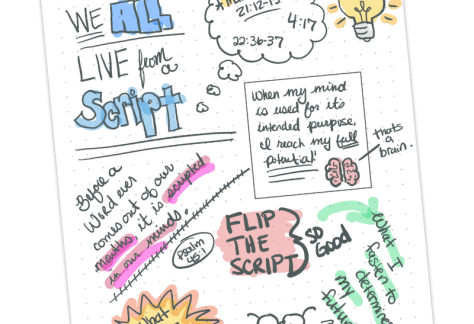 WE ALL
LIVE from
a
Script
21:12-13
4:17
22:36-37
When my mind
is used for it's
intended purpose,
I reach my full
potential!
thats
a
brain.
Before a
Word ever
comes out of our
mouths, it is scripted
in our minds.
Psalm
45:1
FLIP
THE
SCRIPT
SO
GOOD
What I
fasten to
determines
my
future
What